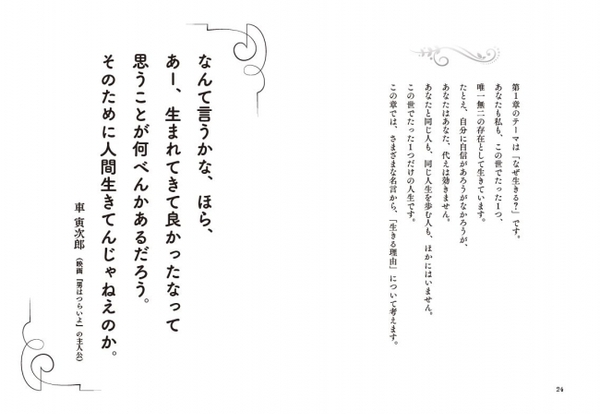 第1章のテーマは「なぜ生きる?」です。
あなたも私も、この世でたった1つ、
唯一無二の存在として生きています。
たとえ、自分に自信があろうがなかろうが、
あなたはあなた、代えは効きません。
あなたと同じ人も、同じ人生を歩む人も、ほかにはいません。
この世でたった1つだけの人生です。
この章では、さまざまな名言から、「生きる理由」について考えます。
24
なんて言うかな、ほら、
あー、生まれてきて良かったなって
思うことが何べんかあるだろう。
そのために人間生きてんじゃねえのか。
車 寅次郎(映画『男はつらいよ』の主人公)